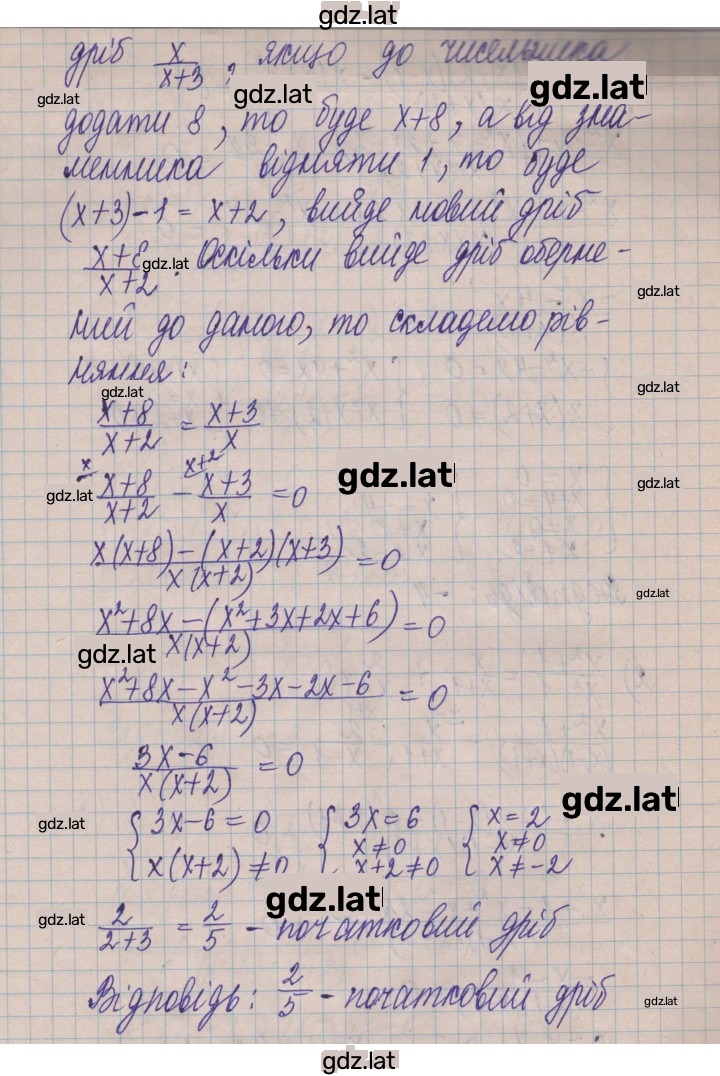 gdz.lat
дріб x/(x+3), якщо до чисельника
gdz.lat
gdz.lat
gdz.lat
додати 8, то буде x+8, а від зна-
менника відняти 1, то буде
(x+3)-1 = x+2, вийде новий дріб
(x+8)/(x+2). Оскільки вийде дріб оберне-
gdz.lat
gdz.lat
ний до даного, то складемо рів-
няння:
gdz.lat
gdz.lat
(x+8)/(x+2) = (x+3)/x
gdz.lat
x x+2
(x+8)/(x+2) - (x+3)/x = 0
gdz.lat
gdz.lat
(x(x+8)-(x+2)(x+3))/(x(x+2)) = 0
gdz.lat
(x²+8x-(x²+3x+2x+6))/(x(x+2)) = 0
gdz.lat
(x²+8x-x²-3x-2x-6)/(x(x+2)) = 0
(3x-6)/(x(x+2)) = 0
gdz.lat
gdz.lat
{ 3x-6=0 { 3x=6 { x=2
x≠0 x≠0
x(x+2)≠0 x+2≠0 x≠-2
gdz.lat
gdz.lat
2/(2+3) = 2/5 - початковий дріб
Відповідь: 2/5 - початковий дріб
gdz.lat
gdz.lat